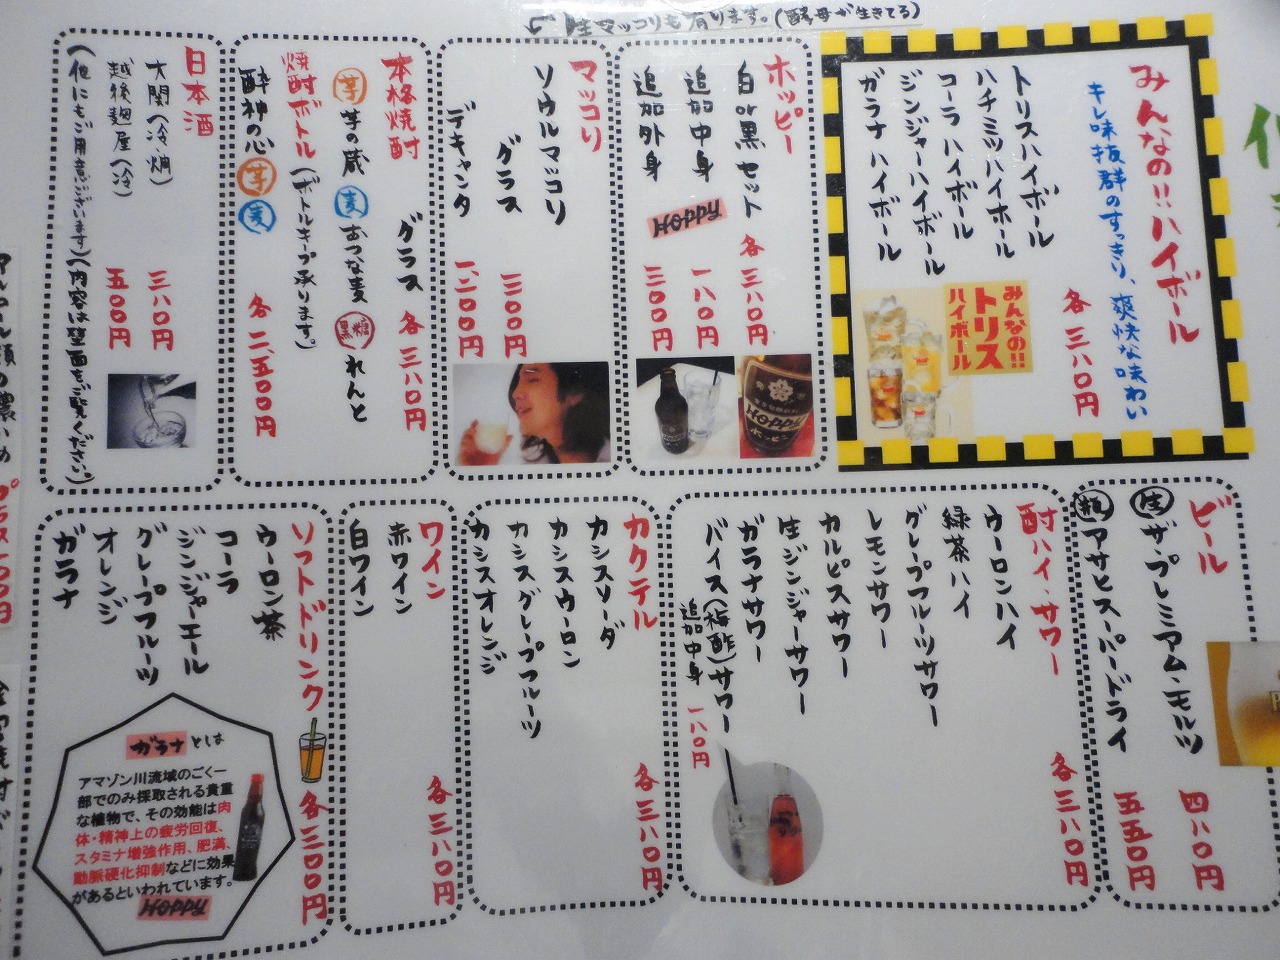 生マッコリも有ります。(酵母が生きてる)
みんなの!!ハイボール
キレ味抜群のすっきり、爽快な味わい
各三八〇円
トリスハイボール
ハチミツハイボール
コーラハイボール
ジンジャーハイボール
ガラナハイボール
みんなの!!
トリス
ハイボール
ホッピー
白or黒セット 各三八〇円
追加中身 一八〇円
追加外身 三〇〇円
HOPPY
HOPPY
ホッピー
マッコリ
ソウルマッコリ
グラス 三〇〇円
デキャンタ 一、二〇〇円
本格焼酎 グラス 各三八〇円
芋 芋の蔵 麦 おつな麦 黒糖 れんと
焼酎ボトル(ボトルキープ承ります。)
酔神の心 芋 麦 各二、五〇〇円
日本酒
大関(冷・燗) 三八〇円
越後麹屋(冷) 五〇〇円
(他にもご用意ございます)(内容は壁面をご覧ください。)
ビール
生 ザ・プレミアム・モルツ 四八〇円
瓶 アサヒスーパードライ 五五〇円
酎ハイ・サワー 各三八〇円
ウーロンハイ
緑茶ハイ
グレープフルーツサワー
レモンサワー
カルピスサワー
生ジンジャーサワー
ガラナサワー
バイス(梅酢)サワー
追加中身 一八〇円
カクテル 各三八〇円
カシスソーダ
カシスウーロン
カシスグレープフルーツ
カシスオレンジ
ワイン 各三八〇円
赤ワイン
白ワイン
ソフトドリンク 各三〇〇円
ウーロン茶
コーラ
ジンジャーエール
グレープフルーツ
オレンジ
ガラナ
ガラナとは
アマゾン川流域のごく一
部でのみ採取される貴重
な植物で、その効能は肉
体・精神上の疲労回復、
スタミナ増強作用、肥満、
動脈硬化抑制などに効果
があるといわれています。
HOPPY